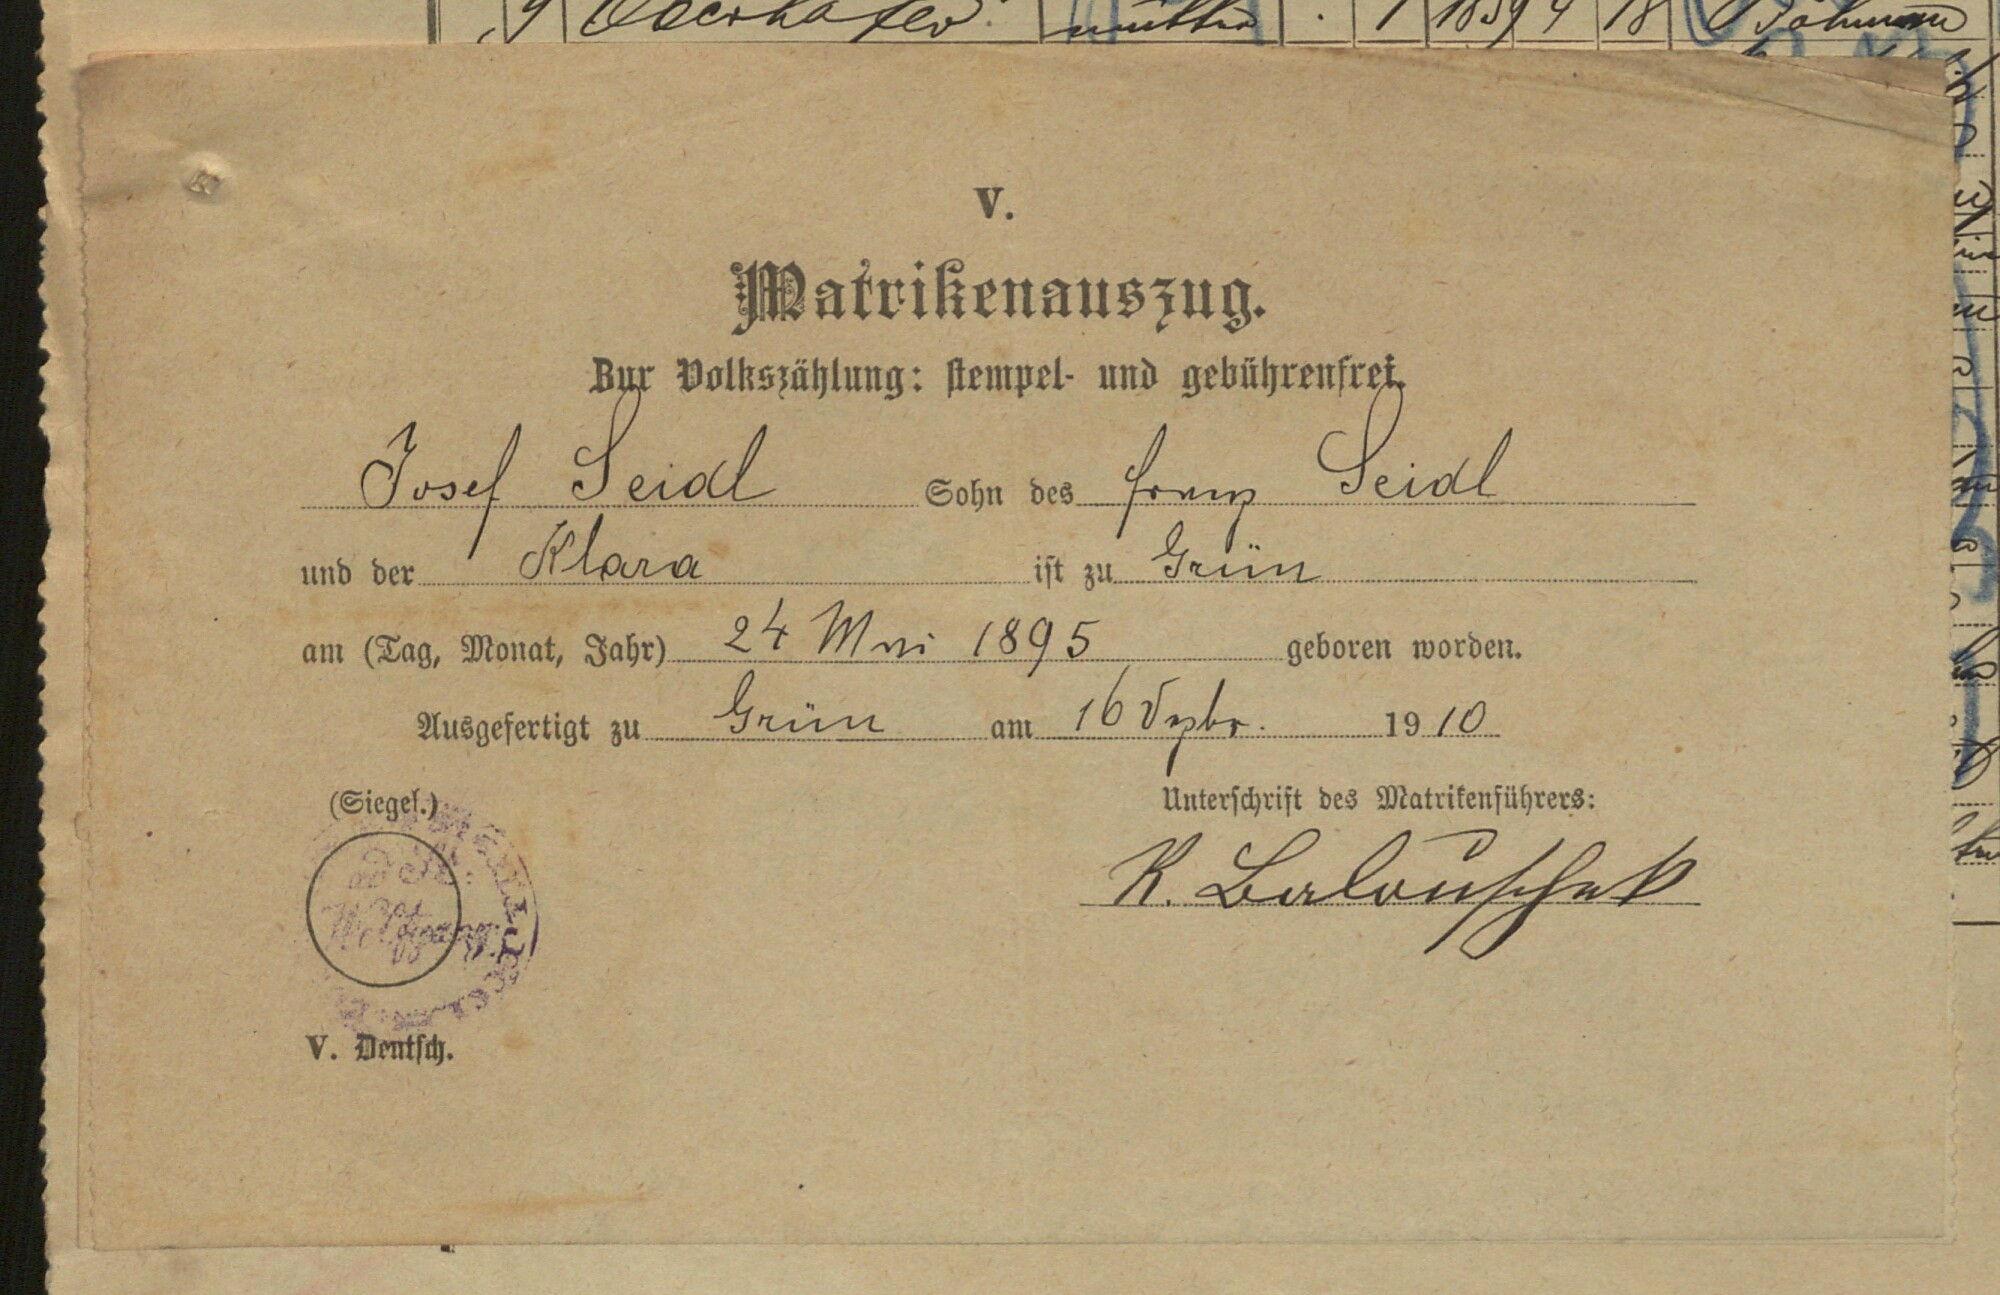 9 mutter 1 1859 4 18 Böhmen
V.
Matrikenauszug.
Zur Volkszählung: stempel- und gebührenfrei.
Josef Seidl Sohn des Franz Seidl
und der Klara ist zu Grün
am (Tag, Monat, Jahr) 24 Mai 1895 geboren worden.
Ausgefertigt zu Grün am 16 Dzbr. 1910
(Siegel.) Unterschrift des Matrikenführers:
ad St. K. Balouschek
Wolfgang
V. Deutsch.